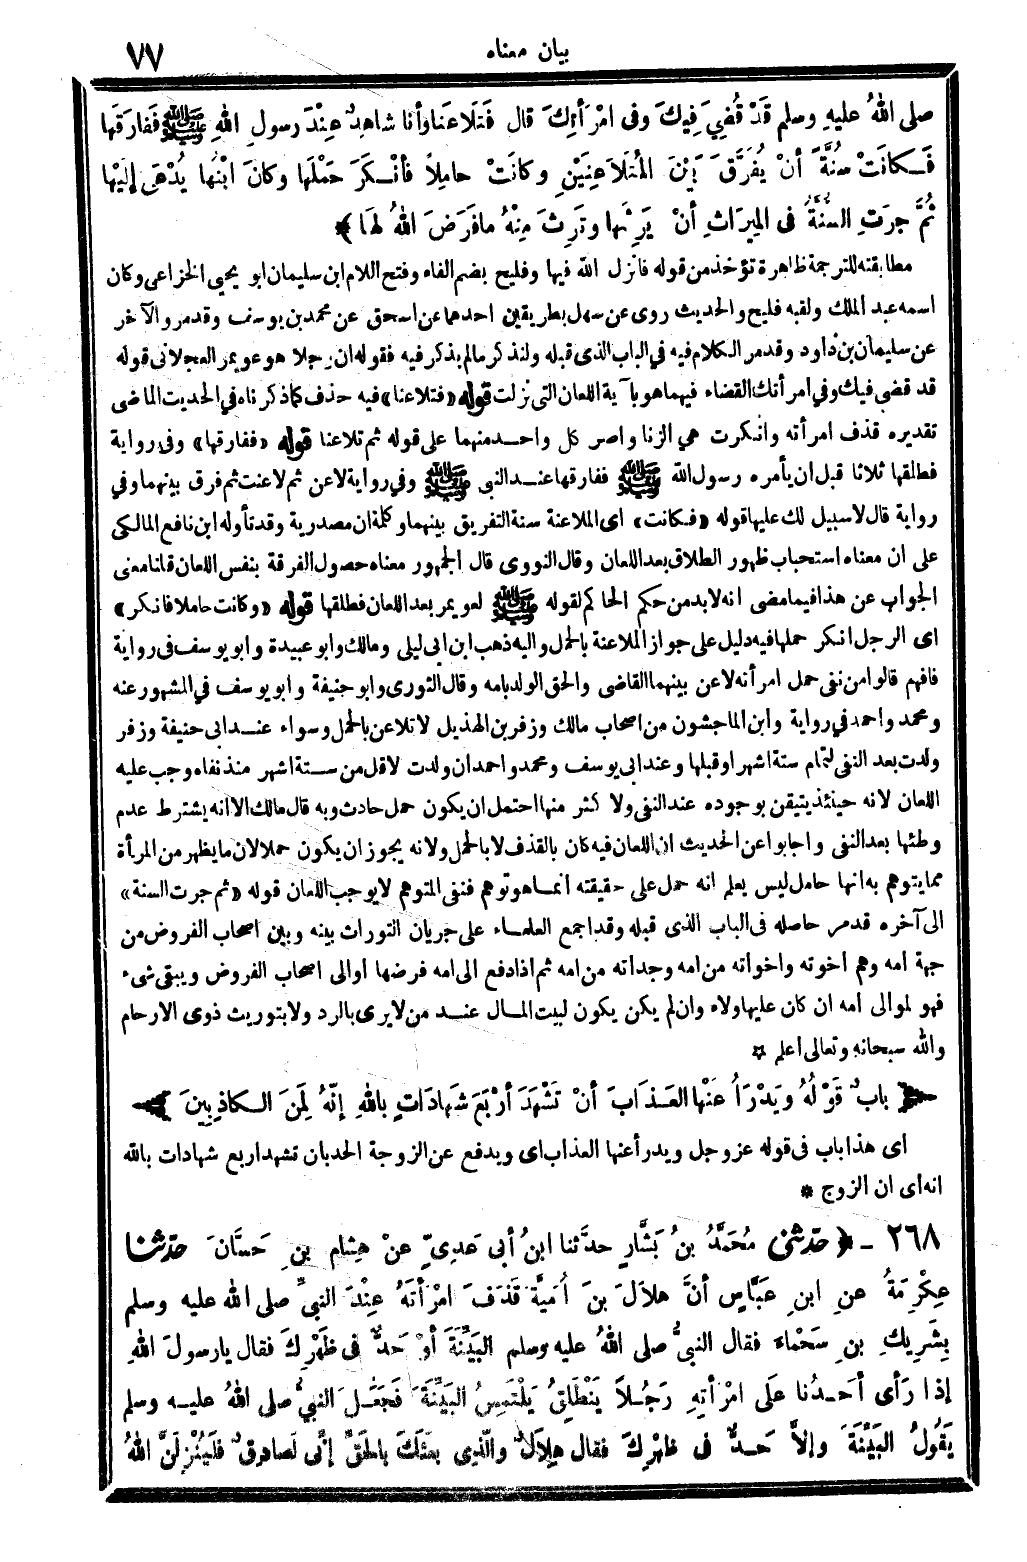 بيان معناه
٧٧
صلى اللهُ عليهِ وسلم قَدْ قُضِيَ فِيكَ وفى امْرَأتِكَ قال فَتَلاَعنَا وأنا شاهِدٌ عِنْدَ رسولِ اللهِ ﷺ فَفارَقَها
فَـكانَتْ سُنَّةً أنْ يُفَرَّقَ بَيْنَ المُتَلاَعِنَيْنِ وكانَتْ حامِلاً فأنْـكَرَ حَمْلَها وكانَ ابْنُها يُدْعَى إلَيْها
ثُمَّ جرَتِ السُنَّةُ فى المِيرَاثِ أنْ يَرِثَها وتَرِثَ مِنْهُ مافَرَضَ اللهُ لهَا ﴾
مطابقته للترجمة ظاهرة تؤخذ من قوله فانزل الله فيها وفليح بضم الفاء وفتح اللام ابن سليمان ابو يحيى الخزاعى وكان
اسمه عبد الملك ولقبه فليح والحديث روى عن سهل بطريقين احدهما عن اسحق عن محمد بن يوسف وقد مر والآخر
عن سليمان بن داود وقد مر الكلام فيه في الباب الذى قبله ولنذكر مالم يذكر فيه فقوله ان رجلا هو عويمر العجلانى قوله
قد قضى فيك وفي امرأتك القضاء فيهما هو بآية اللعان التى نزلت قوله «فتلاعنا» فيه حذف كما ذكرناه في الحديث الماضى
تقديره قذف امرأته وانكرت هي الزنا واصر كل واحد منهما على قوله ثم تلاعنا قوله «ففارقها» وفى رواية
فطلقها ثلاثا قبل ان يأمره رسول الله ﷺ ففارقها عنـد النبى ﷺ وفي رواية لاعن ثم لاعنت ثم فرق بينهما وفي
رواية قال لاسبيل لك عليها قوله «فكانت» اى الملاعنة سنة التفريق بينهما وكلمة ان مصدرية وقد تأوله ابن نافع المالكى
على ان معناه استحباب ظهور الطلاق بعد اللعان وقال النووى قال الجمهور معناه حصول الفرقة بنفس اللعان قلنا معنى
الجواب عن هذا فيما مضى انه لابد من حكم الحاكم لقوله ﷺ لعويمر بعد اللعان فطلقها قوله «وكانت حاملا فانكر»
اى الرجل انكر حملها فيه دليل على جواز الملاعنة بالحمل واليه ذهب ابن ابى ليلى ومالك وابو عبيدة وابو يوسف فى رواية
فانهم قالوا من نفى حمل امرأته لاعن بينهما القاضى والحق الولد بامه وقال الثورى وابو حنيفة وابو يوسف في المشهور عنه
ومحمد واحمد في رواية وابن الماجشون من اصحاب مالك وزفر بن الهذيل لا تلاعن بالحمل وسواء عنـد ابى حنيفة وزفر
ولدت بعد النفى لتمام ستة اشهر او قبلها وعند ابى يوسف ومحمد واحمد ان ولدت لاقل من ستة اشهر منذ نفاه وجب عليه
اللعان لانه حينئذ يتيقن بوجوده عند النفى ولا كثر منها احتمل ان يكون حمل حادث وبه قال مالك الا انه يشترط عدم
وطئها بعد النفى واجابوا عن الحديث ان اللعان فيه كان بالقذف لا بالحمل ولانه يجوز ان يكون حملا لان ما يظهر من المرأة
مما يتوهم به انها حامل ليس يعلم انه حمل على حقيقته انما هو توهم فنفى المتوهم لا يوجب اللعان قوله «ثم جرت السنة»
الى آخره قد مر حاصله فى الباب الذى قبله وقد اجمع العلمـاء على جريان التوراث بينه وبين اصحاب الفروض من
جهة امه وهم اخوته واخواته من امه وجداته من امه ثم اذا دفع الى امه فرضها او الى اصحاب الفروض وبقى شىء
فهو لموالى امه ان كان عليها ولاء وان لم يكن يكون لبيت المـال عنـد من لا يرى بالرد ولا بتوريث ذوى الارحام
والله سبحانه وتعالى أعلم ✡
﴿ بابُ قَوْلُهُ ويَدْرَأُ عَنْها العَـذَابَ أنْ تَشْهَدَ أرْبَعَ شَهادَاتٍ باللهِ إنَّهُ لَمِنَ الـكاذِبِينَ ﴾
اى هذا باب فى قوله عز وجل ويدرأ عنها العذاب اى ويدفع عن الزوجة الحد بان تشهد اربع شهادات بالله
انه أى ان الزوج *
٢٦٨ ـ ﴿ حدّثنى مُحَمَّدُ بنُ بَشَّارٍ حدَّثنا ابنُ أبى عَدِيٍّ عنْ هِشامِ بنِ حَسَّانَ حدّثنا
عِكْرِمَةُ عنِ ابنِ عَبَّاسٍ أنَّ هلاَلَ بنَ أُمَيَّةَ قَذَفَ امْرَأتَهُ عِنْدَ النبيِّ صلى الله عليه وسلم
بِشَرِيكِ بنِ سَحْماءَ فقال النبيُّ صلى اللهُ عليه وسلم البَيِّنَةَ أوْ حَدٌّ فى ظَهْرِكَ فقال يا رسولَ اللهِ
إذا رَأى أحَدُنا علَى امْرأتِهِ رَجُلاً يَنْطَلِقُ يَلْتَمِسُ البَيِّنَةَ فَجَعَلَ النبيُّ صلى اللهُ عليه وسلم
يَقُولُ البَيِّنَةَ وإلاَّ حَدٌّ فى ظَهْرِكَ فقال هِلاَلٌ والَّذِى بَعَثَكَ بالحَقِّ إنِّى لَصادِقٌ فَلَيُنْزِلَنَّ اللهُ